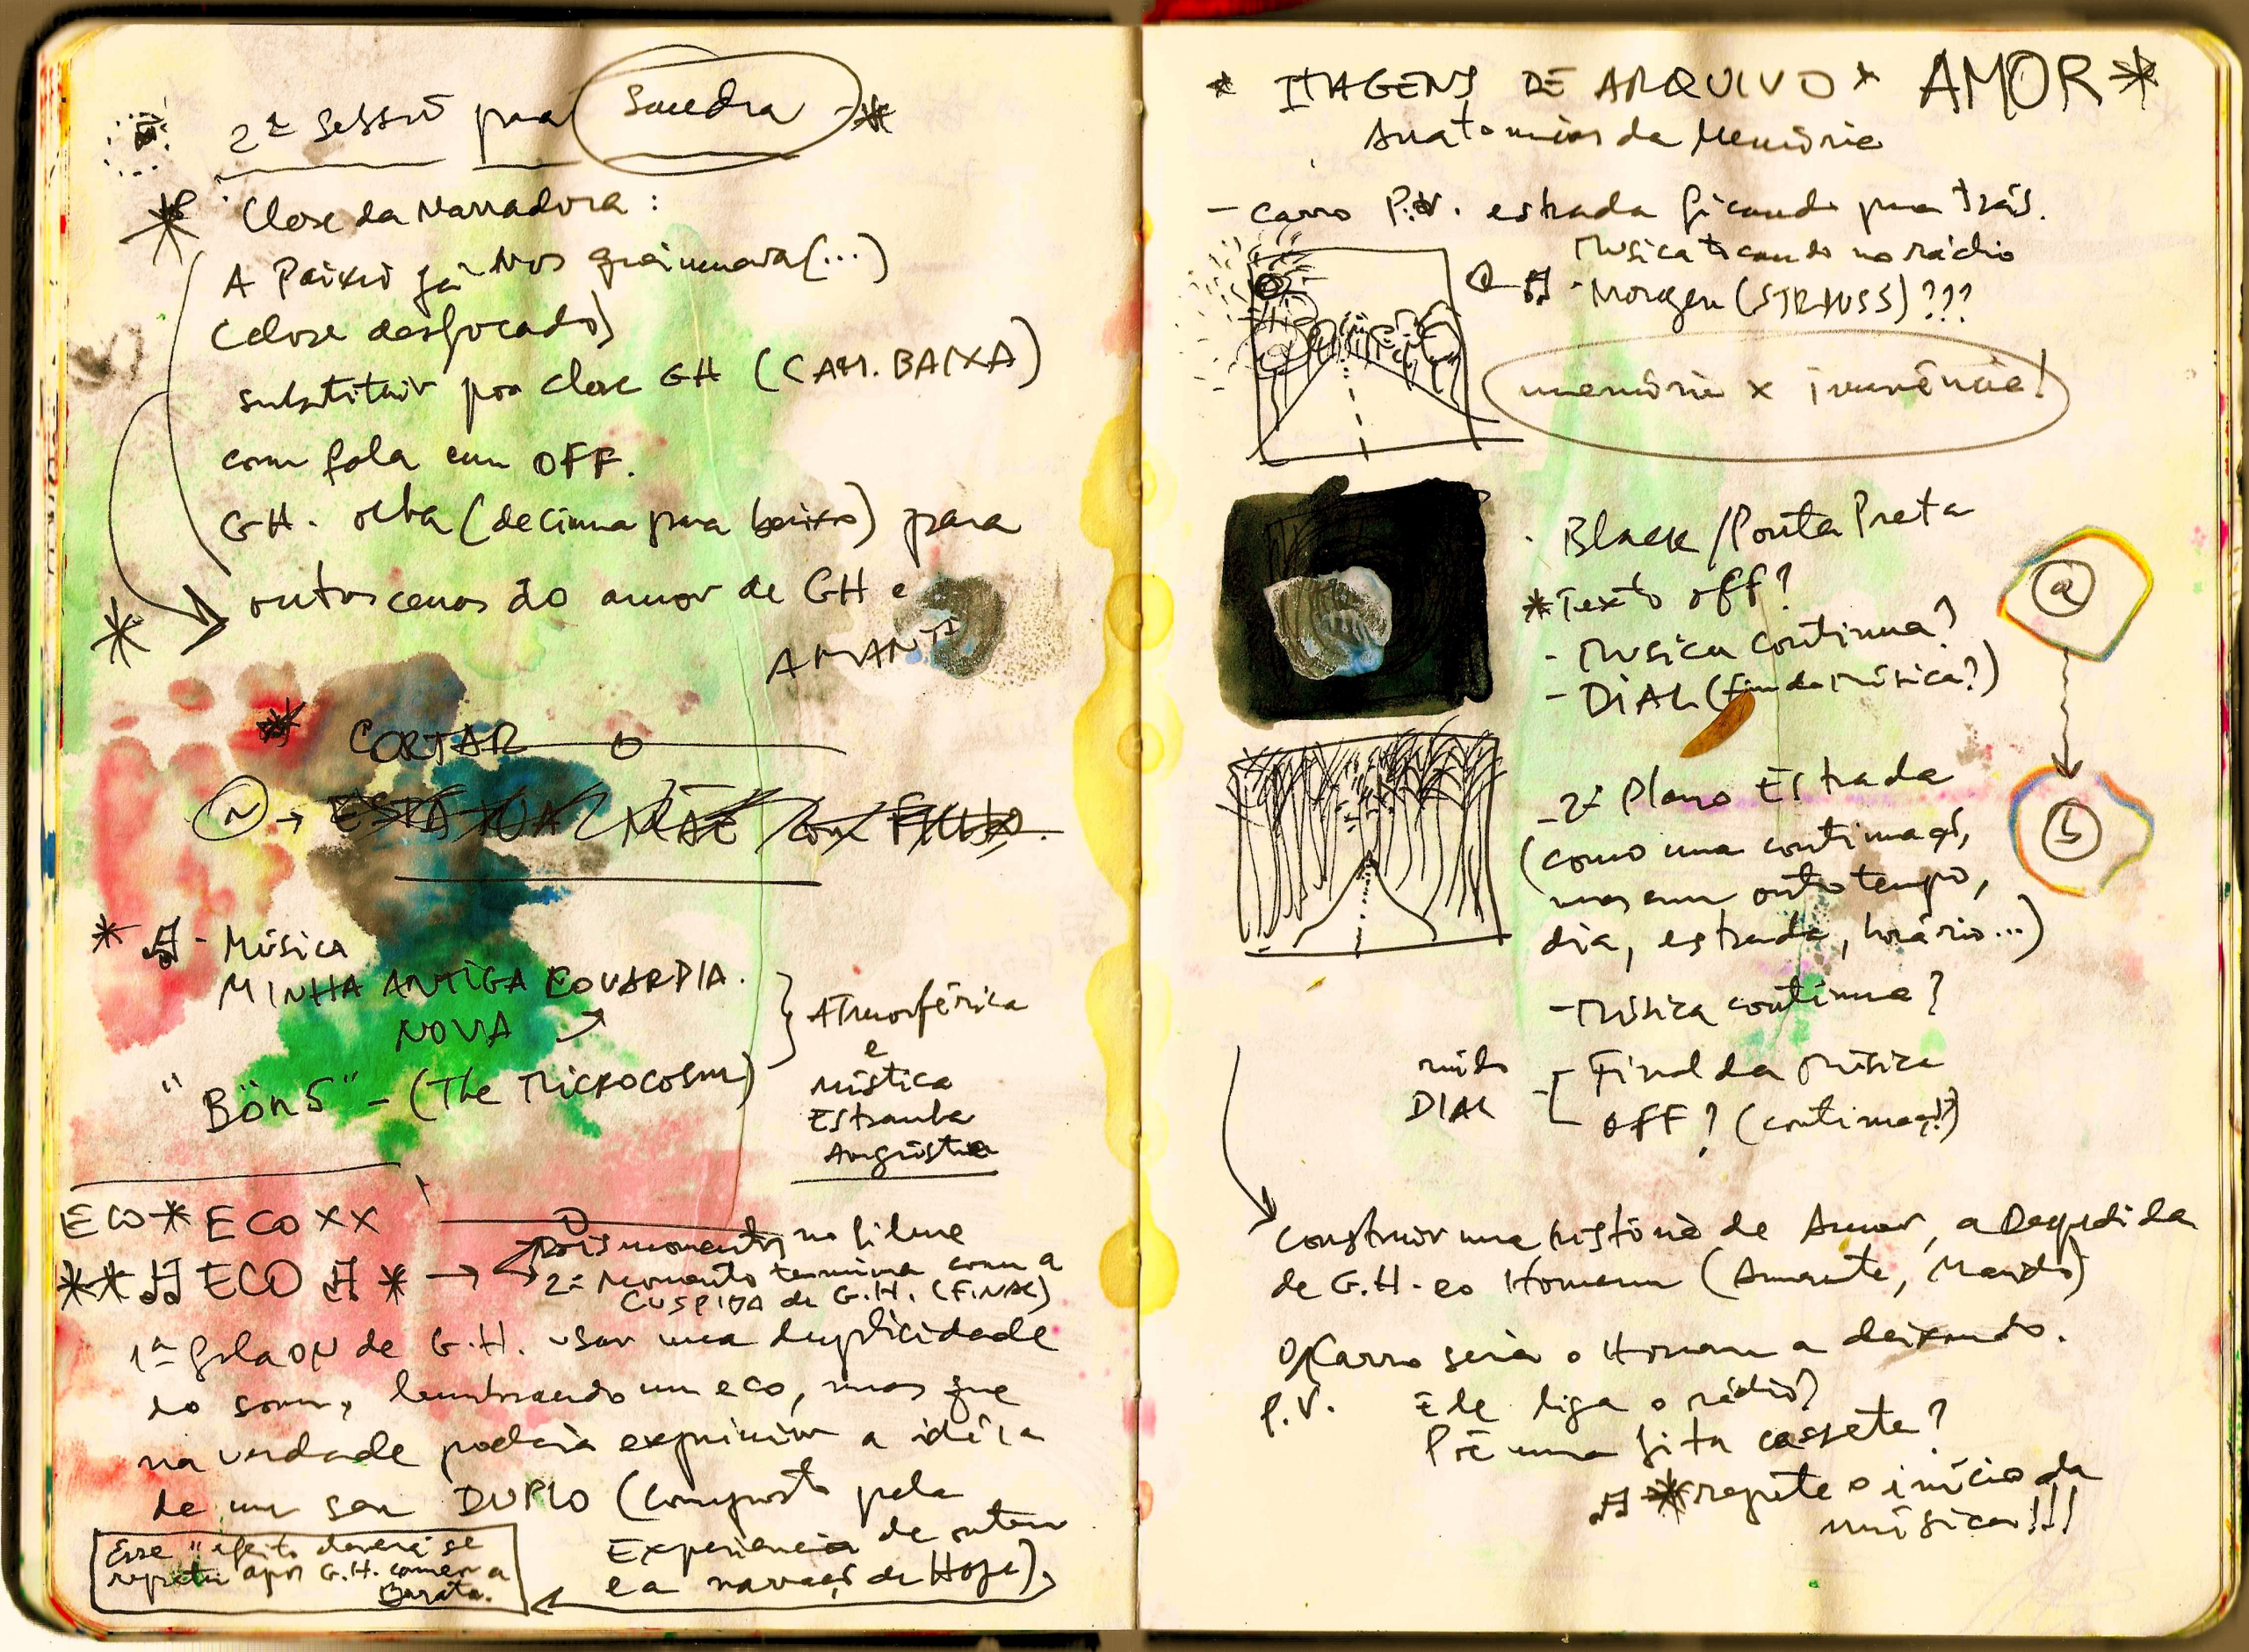 2ª sessão para Sandra *
* Close da Narradora:
A Paixão já nos (...)
(close desfocado)
substituir por close GH (CAM. BAIXA)
com fala em OFF.
GH. olha (de cima para baixo) para
* outras cenas do amor de GH e
AMANTE
* CORTAR
N → ESTÁTUA MÃE com FILHO.
* Música
MINHA ANTIGA
NOVA
"BÖN 5" - (The Microcosm)
Atmosférica
e
Mística
Estranha
Angústia
ECO * ECO XX
** ECO * → Dois momentos no filme
2º Momento termina com a
CUSPIDA de G.H. (FINAL)
1ª fala ON de G.H. usar uma duplicidade
do som, lembrando um eco, mas que
na verdade poderia exprimir a idéia
de um ser DUPLO (composto pela
Experiencia de ontem
e a narração de Hoje)
Esse "efeito deverá se
repetir após G.H. comer a
Barata.
* IMAGENS DE ARQUIVO * AMOR *
Anatomias da Memória
- carro P.V. estrada ficando para trás.
Musica tocando no rádio
- Morgen (STRAUSS) ???
memória x
. Black / Ponta Preta
* Texto off?
- Musica continua?
- DIAL (fim da Música?)
a
- 2º Plano Estrada
b
(como uma continuaçã,
mas em outro tempo,
dia, estrada, horário...)
- Música continua?
ruído
DIAL
- Final da Música
OFF? (continuaçã?)
Construir uma história de Amor, a Despedida
de G.H. e o Homem (Amante, Marido)
O Carro seria o Homem a deixando.
P.V. Ele liga o rádio?
Põe uma fita cassete?
* repete o início da
música!!!